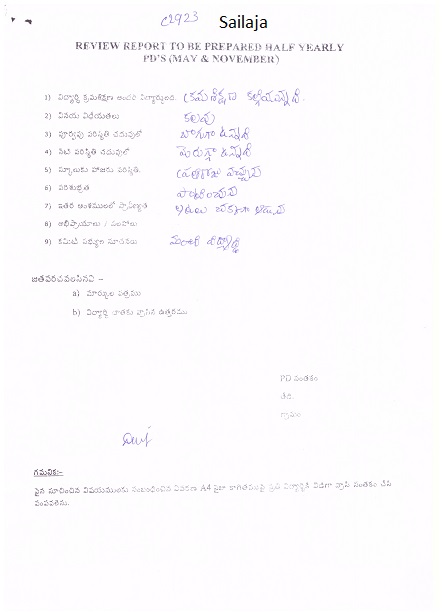 C2923 Sailaja
REVIEW REPORT TO BE PREPARED HALF YEARLY
PD'S (MAY & NOVEMBER)
1) విద్యార్థి క్రమశిక్షణ అందరి విద్యార్థులది. క్రమశిక్షణ కల్గియున్నది.
2) వినయ విధేయతలు కలవు
3) పూర్వపు పరిస్థితి చదువులో బాగుగా ఉన్నది
4) నేటి పరిస్థితి చదువులో మెరుగ్గా ఉన్నది
5) స్కూలుకు హాజరు పరిస్థితి. ప్రతిరోజు వచ్చును
6) పరిశుభ్రత పాటించును
7) ఇతర అంశములలో ప్రావీణ్యత ఆటలు చక్కగా ఆడును
8) అభిప్రాయాలు / సలహాలు
9) కమిటీ సభ్యుల సూచనలు మంచి విద్యార్థి
జతపరచవలసినవి :-
a) మార్కుల పత్రము
b) విద్యార్థి దాతకు వ్రాసిన ఉత్తరము
PD సంతకం
తేది.
గ్రామం
గమనిక:-
పైన సూచించిన విషయములకు సంబంధించిన వివరణ A4 సైజు కాగితముపై ప్రతి విద్యార్థికి విడిగా వ్రాసి సంతకం చేసి
పంపవలెను.